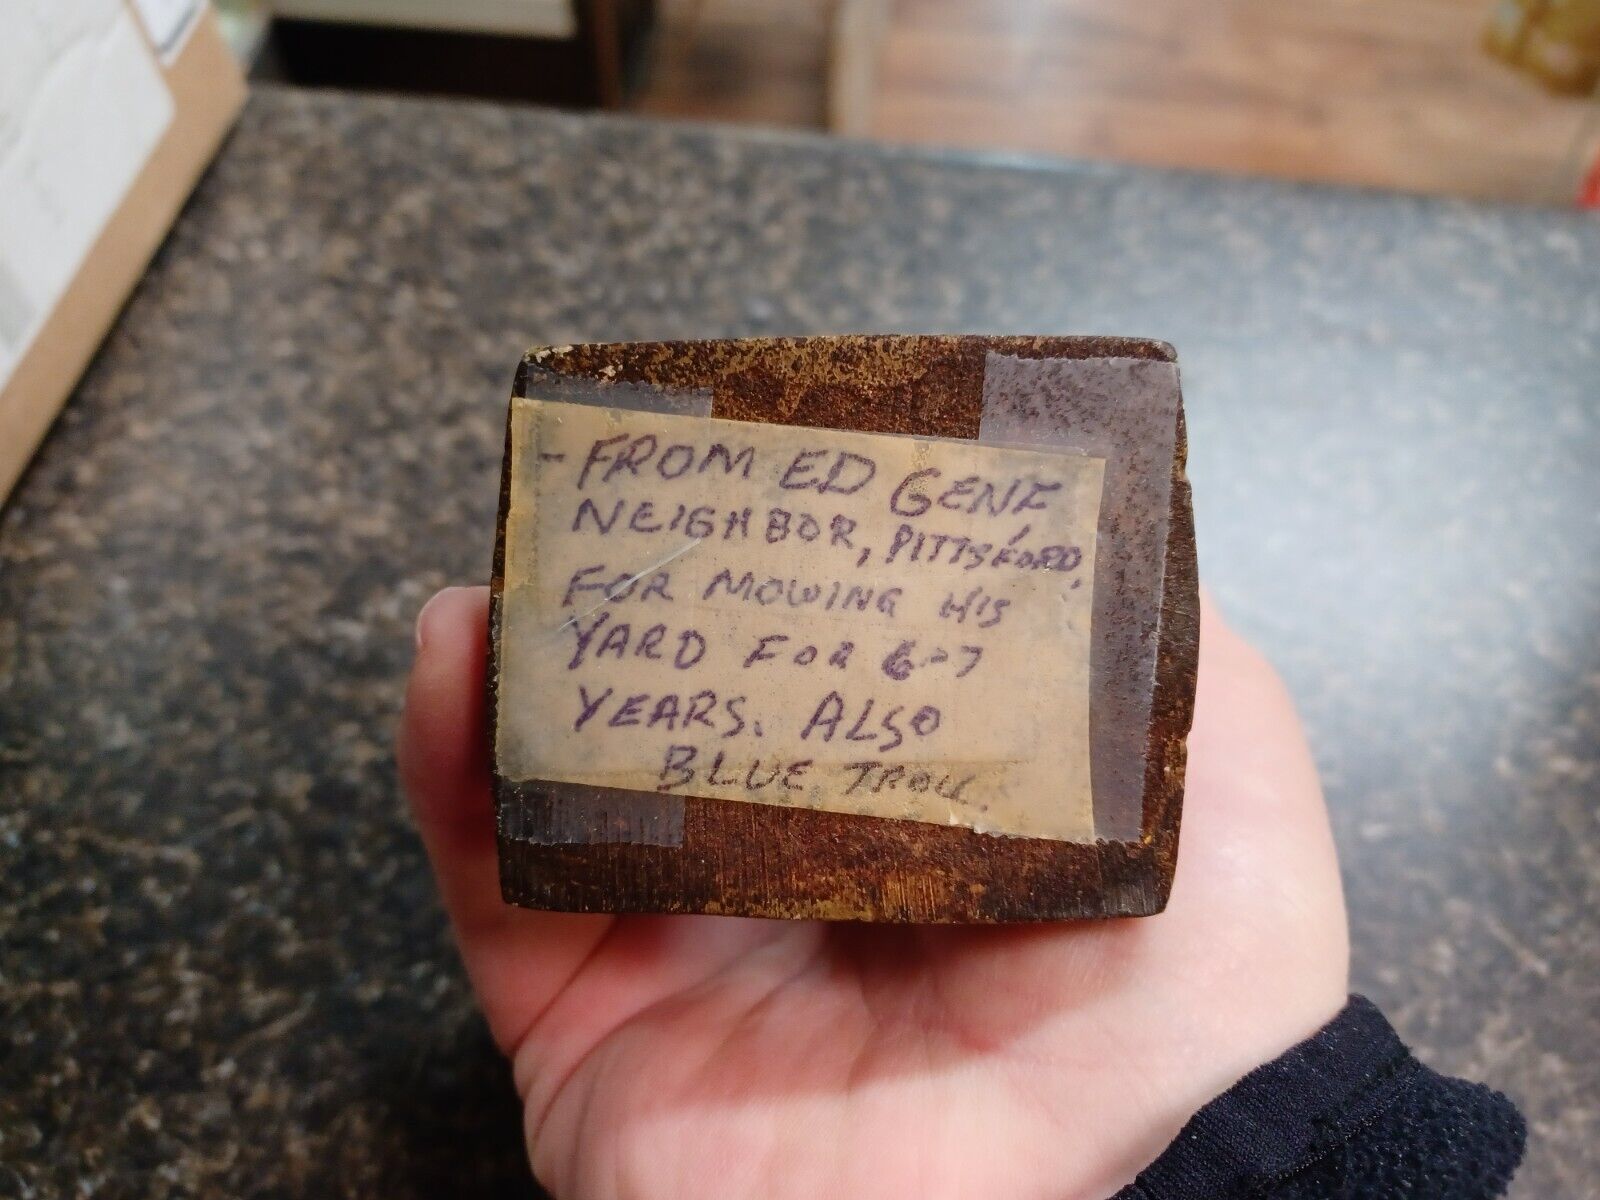 - FROM ED GENE,
NEIGHBOR, PITTSFORD,
FOR MOWING HIS
YARD FOR 6-7
YEARS. ALSO
BLUE TROLL.